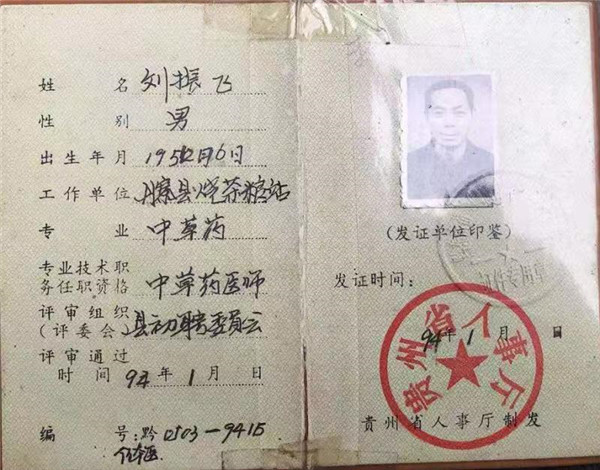 姓 名 刘振飞
性 别 男
出生年月
工作单位
专 业 中草药
专业技术职
务任职资格 中草药医师
评审组织
(评委会) 县初聘委员会
评审通过
时 间 94 年 1 月 日
编 号:黔 0503-9415
(发证单位印鉴)
证件专用章
发证时间:
94 年 1 月 日
贵州省人事厅
贵州省人事厅制发